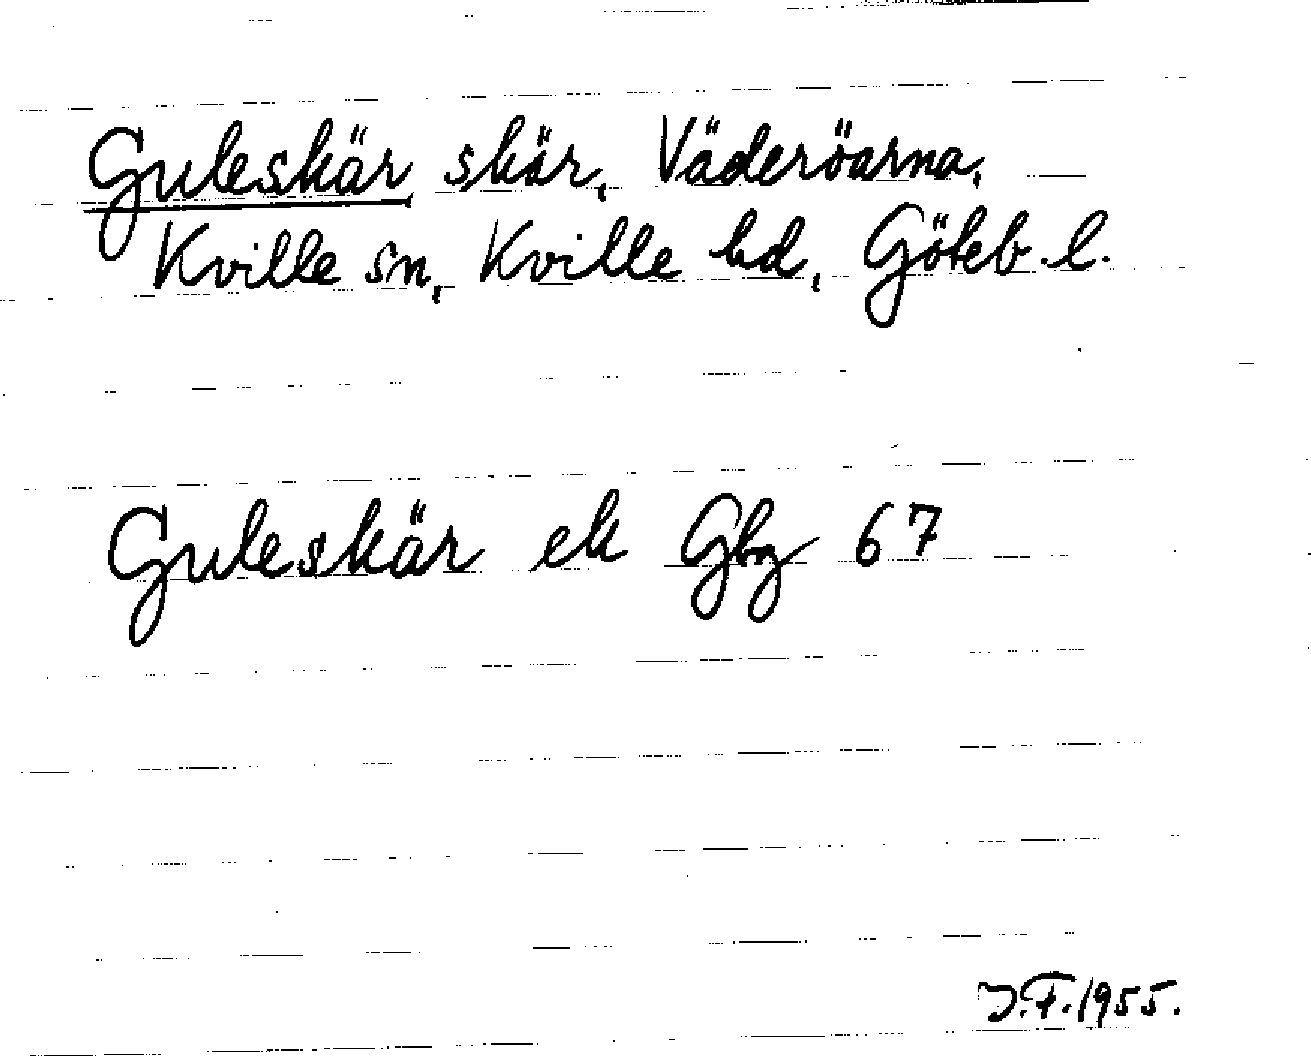 Guleskär skär, Väderöarna,
Kville sn, Kville hd, Göteb. l.
Guleskär ek Gbg 67
J.F. 1955.